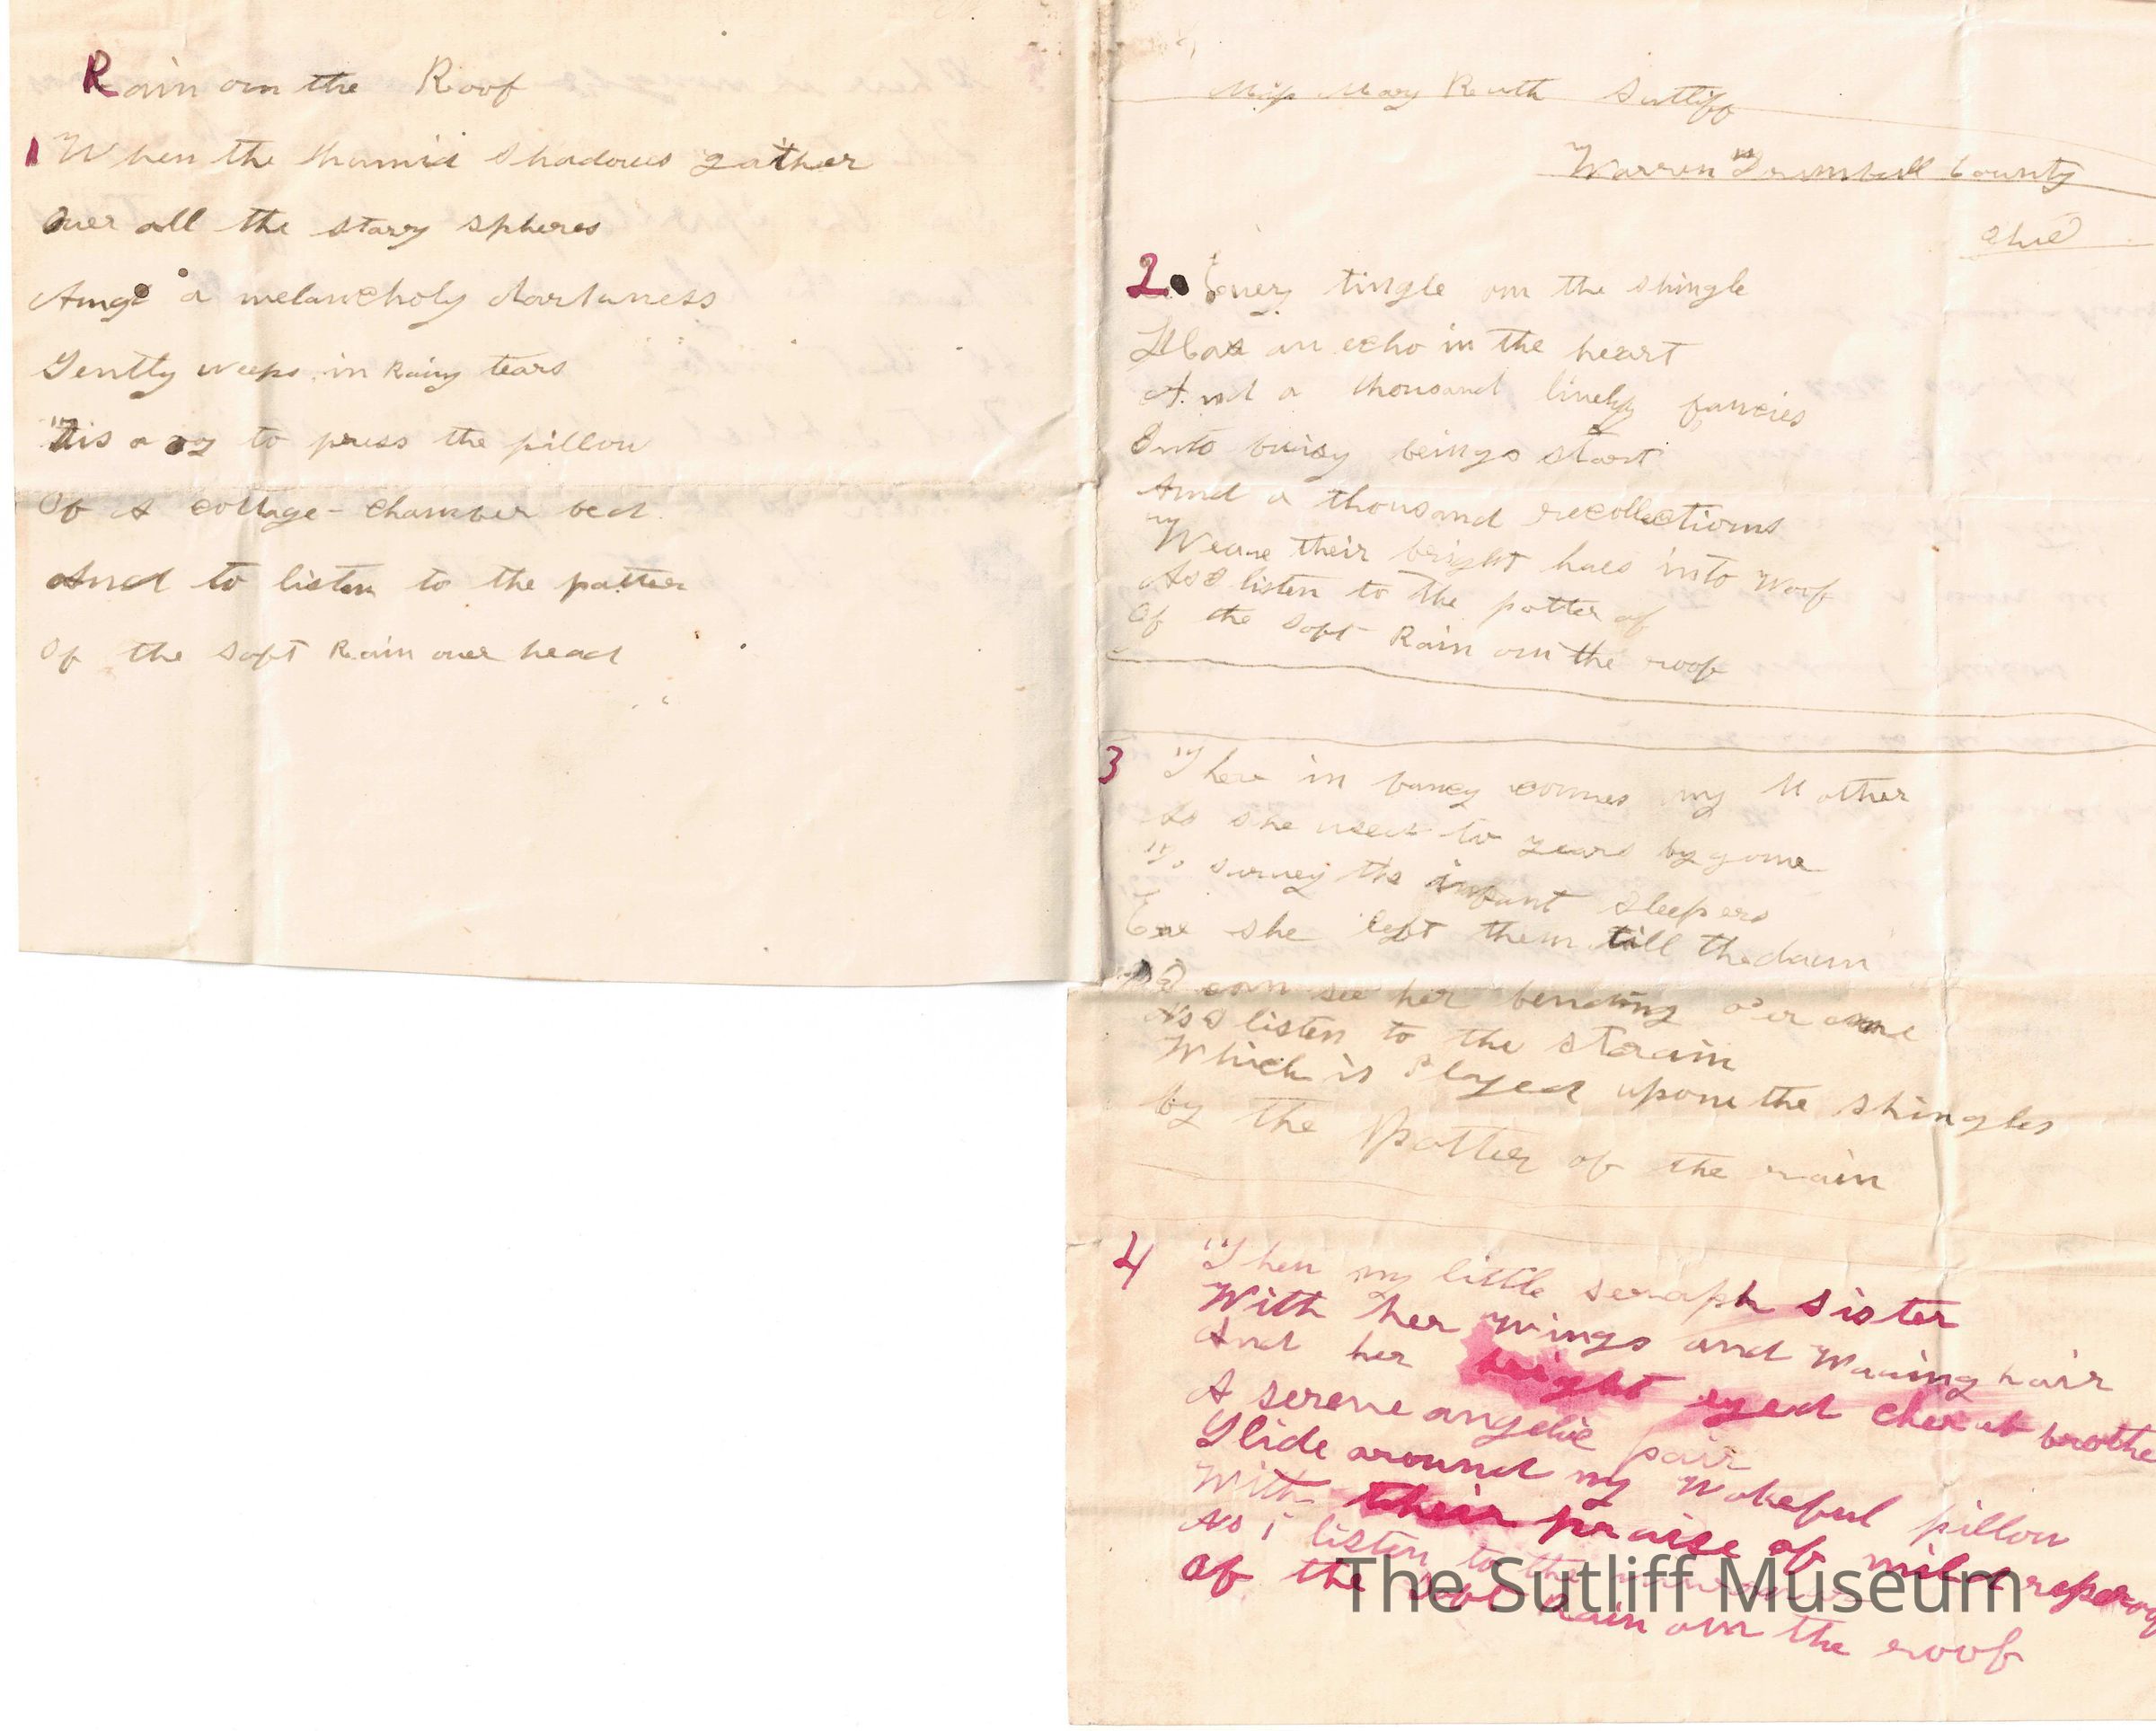 Rain on the Roof
1 When the humid shadows gather
Over all the starry spheres
And a melancholy darkness
Gently weeps in Rainy tears
Tis a joy to press the pillow
Of A cottage-chamber bed
And to listen to the patter
Of the soft Rain over head
Miss Mary Ruth Sutliff
Warren Trumbull County
Ohio
2. Every tingle on the shingle
Has an echo in the heart
And a thousand lively fancies
Into buisy beings start
And a thousand recollections
Weave their bright hues into Woof
As I listen to the patter of
Of the soft Rain on the roof
3 There in fancy comes my Mother
As she used to years bygone
To survey the infant sleepers
Ere she left them till the dawn
I can see her bending o'er me
As I listen to the strain
Which is Played upon the shingles
by the Patter of the rain
4 Then my little seraph sister
With her wings and Waving hair
And her bright eyed cherub brothe
A serene angelic pair
Glide around my Wakeful pillow
With their praise of mild reproof
As i listen to the murmur
Of the soft Rain on the roof
The Sutliff Museum